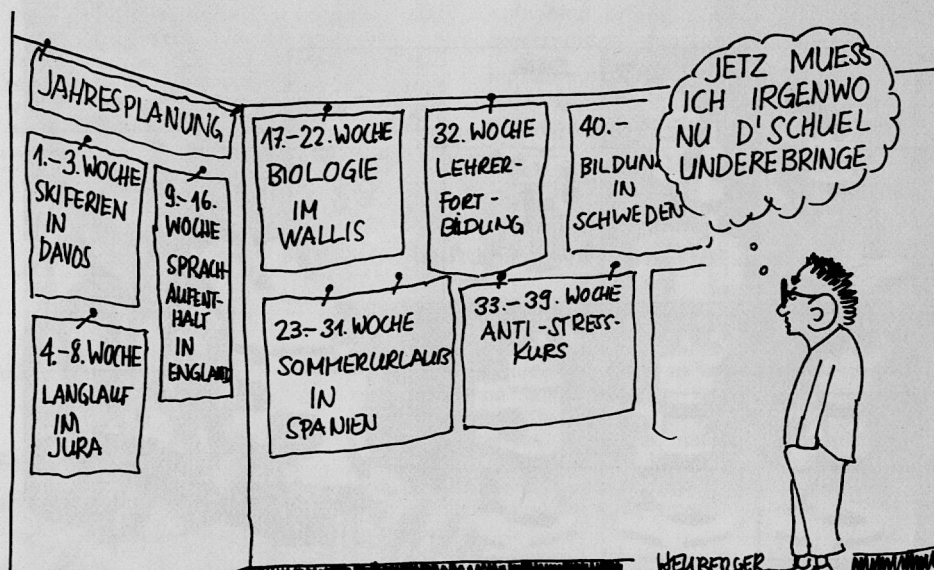 JAHRESPLANUNG
1.-3. WOCHE
SKIFERIEN
IN
DAVOS
4.-8. WOCHE
LANGLAUF
IM
JURA
9.-16.
WOCHE
SPRACH-
AUFENT-
HALT
IN
ENGLAND
17.-22. WOCHE
BIOLOGIE
IM
WALLIS
23-31. WOCHE
SOMMERURLAUB
IN
SPANIEN
32. WOCHE
LEHRER-
FORT-
BILDUNG
33.-39. WOCHE
ANTI-STRESS-
KURS
40.-
BILDUN
IN
SCHWEDEN
JETZ MUESS
ICH IRGENWO
NU D'SCHUEL
UNDEREBRINGE
HEUBERGER